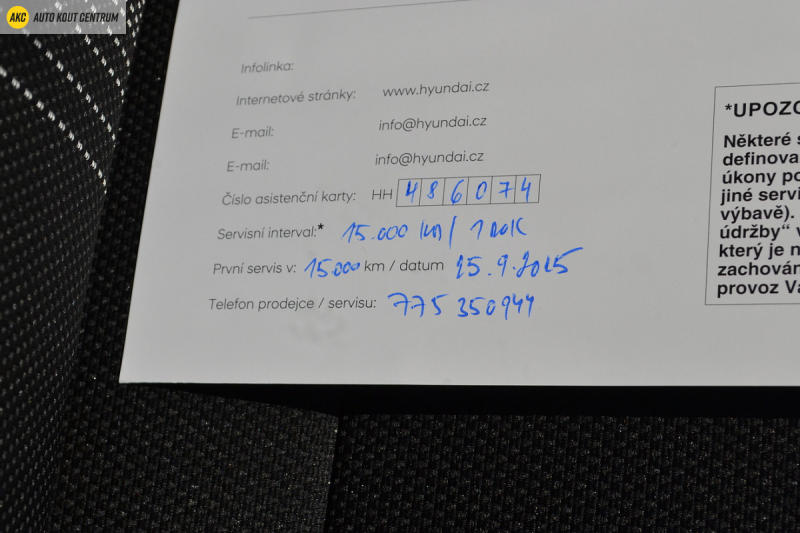 AKC AUTO KOUT CENTRUM
Infolinka:
Internetové stránky: www.hyundai.cz
E-mail: info@hyundai.cz
E-mail: info@hyundai.cz
Číslo asistenční karty: HH 486074
Servisní interval:* 15.000 km / 1 ROK
První servis v: 15.000 km / datum 25.9.2025
Telefon prodejce / servisu: 775 350944
*UPOZO
Některé s
definova
úkony po
jiné servi
výbavě).
údržby“ v
který je n
zachován
provoz Va